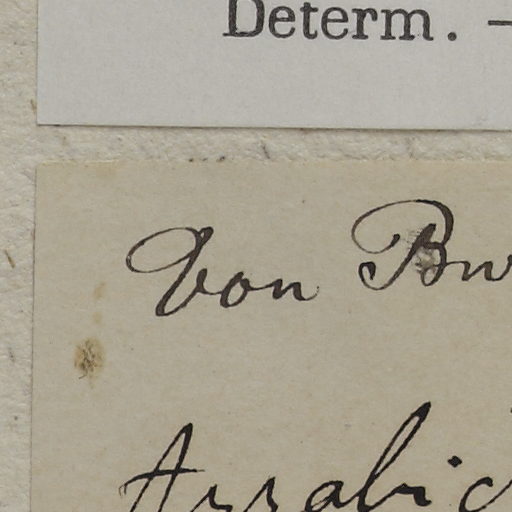 Determ. –
Von Bu
Arrabid